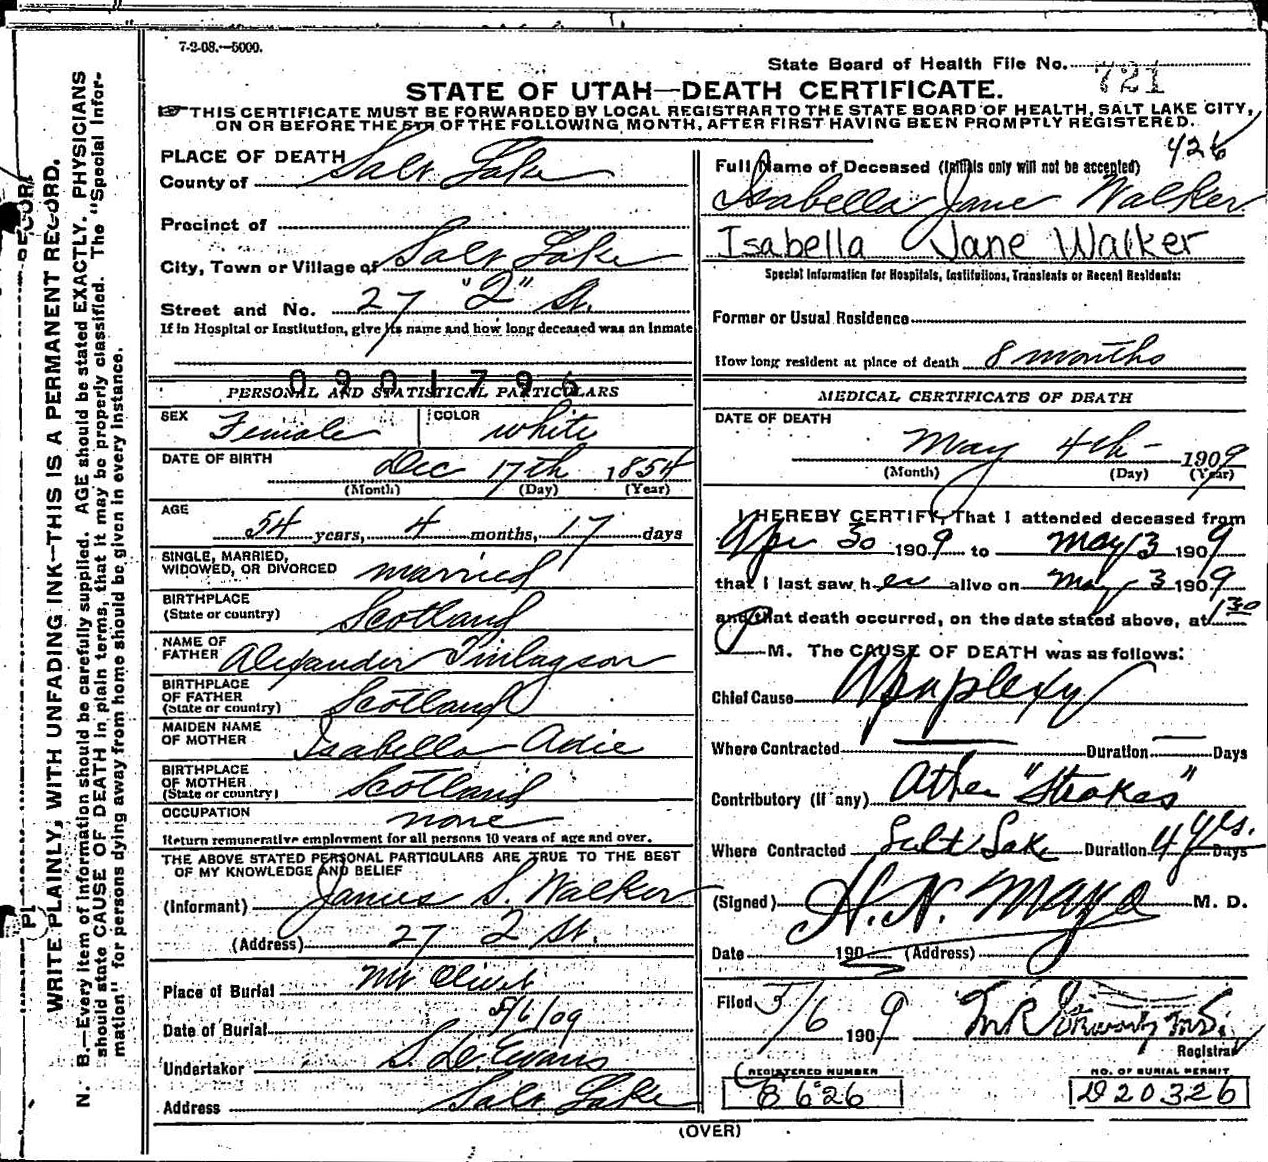 7-2-08.—5000.
State Board of Health File No. 721
STATE OF UTAH—DEATH CERTIFICATE.
THIS CERTIFICATE MUST BE FORWARDED BY LOCAL REGISTRAR TO THE STATE BOARD OF HEALTH, SALT LAKE CITY,
ON OR BEFORE THE 5TH OF THE FOLLOWING MONTH, AFTER FIRST HAVING BEEN PROMPTLY REGISTERED.
WRITE PLAINLY, WITH UNFADING INK—THIS IS A PERMANENT RECORD.
N. B.—Every item of information should be carefully supplied. AGE should be stated EXACTLY. PHYSICIANS
should state CAUSE OF DEATH in plain terms, that it may be properly classified. The "Special Infor-
mation" for persons dying away from home should be given in every instance.
PLACE OF DEATH
County of Salt Lake
Precinct of
City, Town or Village of Salt Lake
Street and No. 27 "Q" St.
If in Hospital or Institution, give its name and how long deceased was an inmate
0901796
PERSONAL AND STATISTICAL PARTICULARS
SEX Female COLOR white
DATE OF BIRTH Dec 17th 1854
(Month) (Day) (Year)
AGE
54 years, 4 months, 17 days
SINGLE, MARRIED,
WIDOWED, OR DIVORCED married
BIRTHPLACE
(State or country) Scotland
NAME OF
FATHER Alexander Finlayson
BIRTHPLACE
OF FATHER
(State or country) Scotland
MAIDEN NAME
OF MOTHER Isabella Adie
BIRTHPLACE
OF MOTHER
(State or country) Scotland
OCCUPATION none
Return remunerative employment for all persons 10 years of age and over.
THE ABOVE STATED PERSONAL PARTICULARS ARE TRUE TO THE BEST
OF MY KNOWLEDGE AND BELIEF
(Informant) James S. Walker
(Address) 27 Q St.
Place of Burial Mt Olivet
Date of Burial 5/6/09
Undertaker S. D. Evans
Address Salt Lake
426
Full Name of Deceased (Initials only will not be accepted)
Isabella Jane Walker
Isabella Jane Walker
Special Information for Hospitals, Institutions, Transients or Recent Residents:
Former or Usual Residence
How long resident at place of death 8 months
MEDICAL CERTIFICATE OF DEATH
DATE OF DEATH
May 4th 1909
(Month) (Day) (Year)
I HEREBY CERTIFY, That I attended deceased from
Apr 30 1909 to May 3 1909
that I last saw her alive on May 3 1909
and that death occurred, on the date stated above, at 1 30
M. The CAUSE OF DEATH was as follows:
Chief Cause Apoplexy
Where Contracted Duration Days
Contributory (if any) Other "Strokes"
Where Contracted Salt Lake Duration 4 yrs. Days
(Signed) H. N. Mayo M. D.
Date 190 (Address)
Filed 5/6 1909
Registrar
REGISTERED NUMBER
8626
NO. OF BURIAL PERMIT
D20326
(OVER)